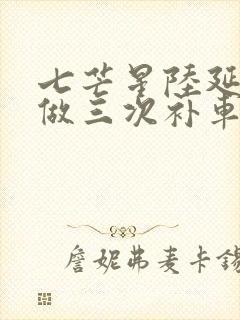 七芒星陆延
做三次补车
詹妮弗麦卡锡